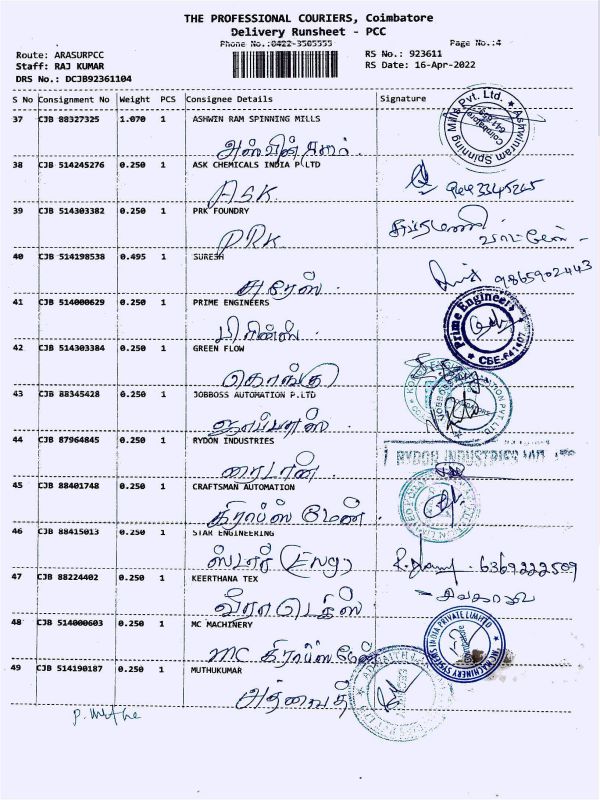 THE PROFESSIONAL COURIERS, Coimbatore
Delivery Runsheet - PCC
Phone No.:0422-3505555 Page No.:4
Route: ARASURPCC RS No.: 923611
Staff: RAJ KUMAR RS Date: 16-Apr-2022
DRS No.: DCJB92361104
S No Consignment No Weight PCS Consignee Details Signature
37 CJB 88327325 1.070 1 ASHWIN RAM SPINNING MILLS
Ashwinram Spinning Mills Pvt. Ltd.
Coimbatore
38 CJB 514245276 0.250 1 ASK CHEMICALS INDIA P.LTD
ASK
39 CJB 514303382 0.250 1 PRK FOUNDRY
PRK
40 CJB 514198538 0.495 1 SURESH
சுரேஷ் 9865902443
41 CJB 514000629 0.250 1 PRIME ENGINEERS
பிரின்ஸ்
Prime Engineers
CBE-641407
42 CJB 514303384 0.250 1 GREEN FLOW
கொங்கு
43 CJB 88345428 0.250 1 JOBBOSS AUTOMATION P.LTD
JOBBOSS AUTOMATION PVT LTD
44 CJB 87964845 0.250 1 RYDON INDUSTRIES
ரைடான்
RYDON INDUSTRIES
45 CJB 88401748 0.250 1 CRAFTSMAN AUTOMATION
கிராப்ஸ் மேன்
46 CJB 88415013 0.250 1 STAR ENGINEERING
ஸ்டார் (Eng) 6369222509
47 CJB 88224402 0.250 1 KEERTHANA TEX
48 CJB 514000603 0.250 1 MC MACHINERY
MC கிராப்ஸ் மேன்
MC MACHINERY SYSTEMS INDIA PRIVATE LIMITED
49 CJB 514190187 0.250 1 MUTHUKUMAR
அத்வைத்